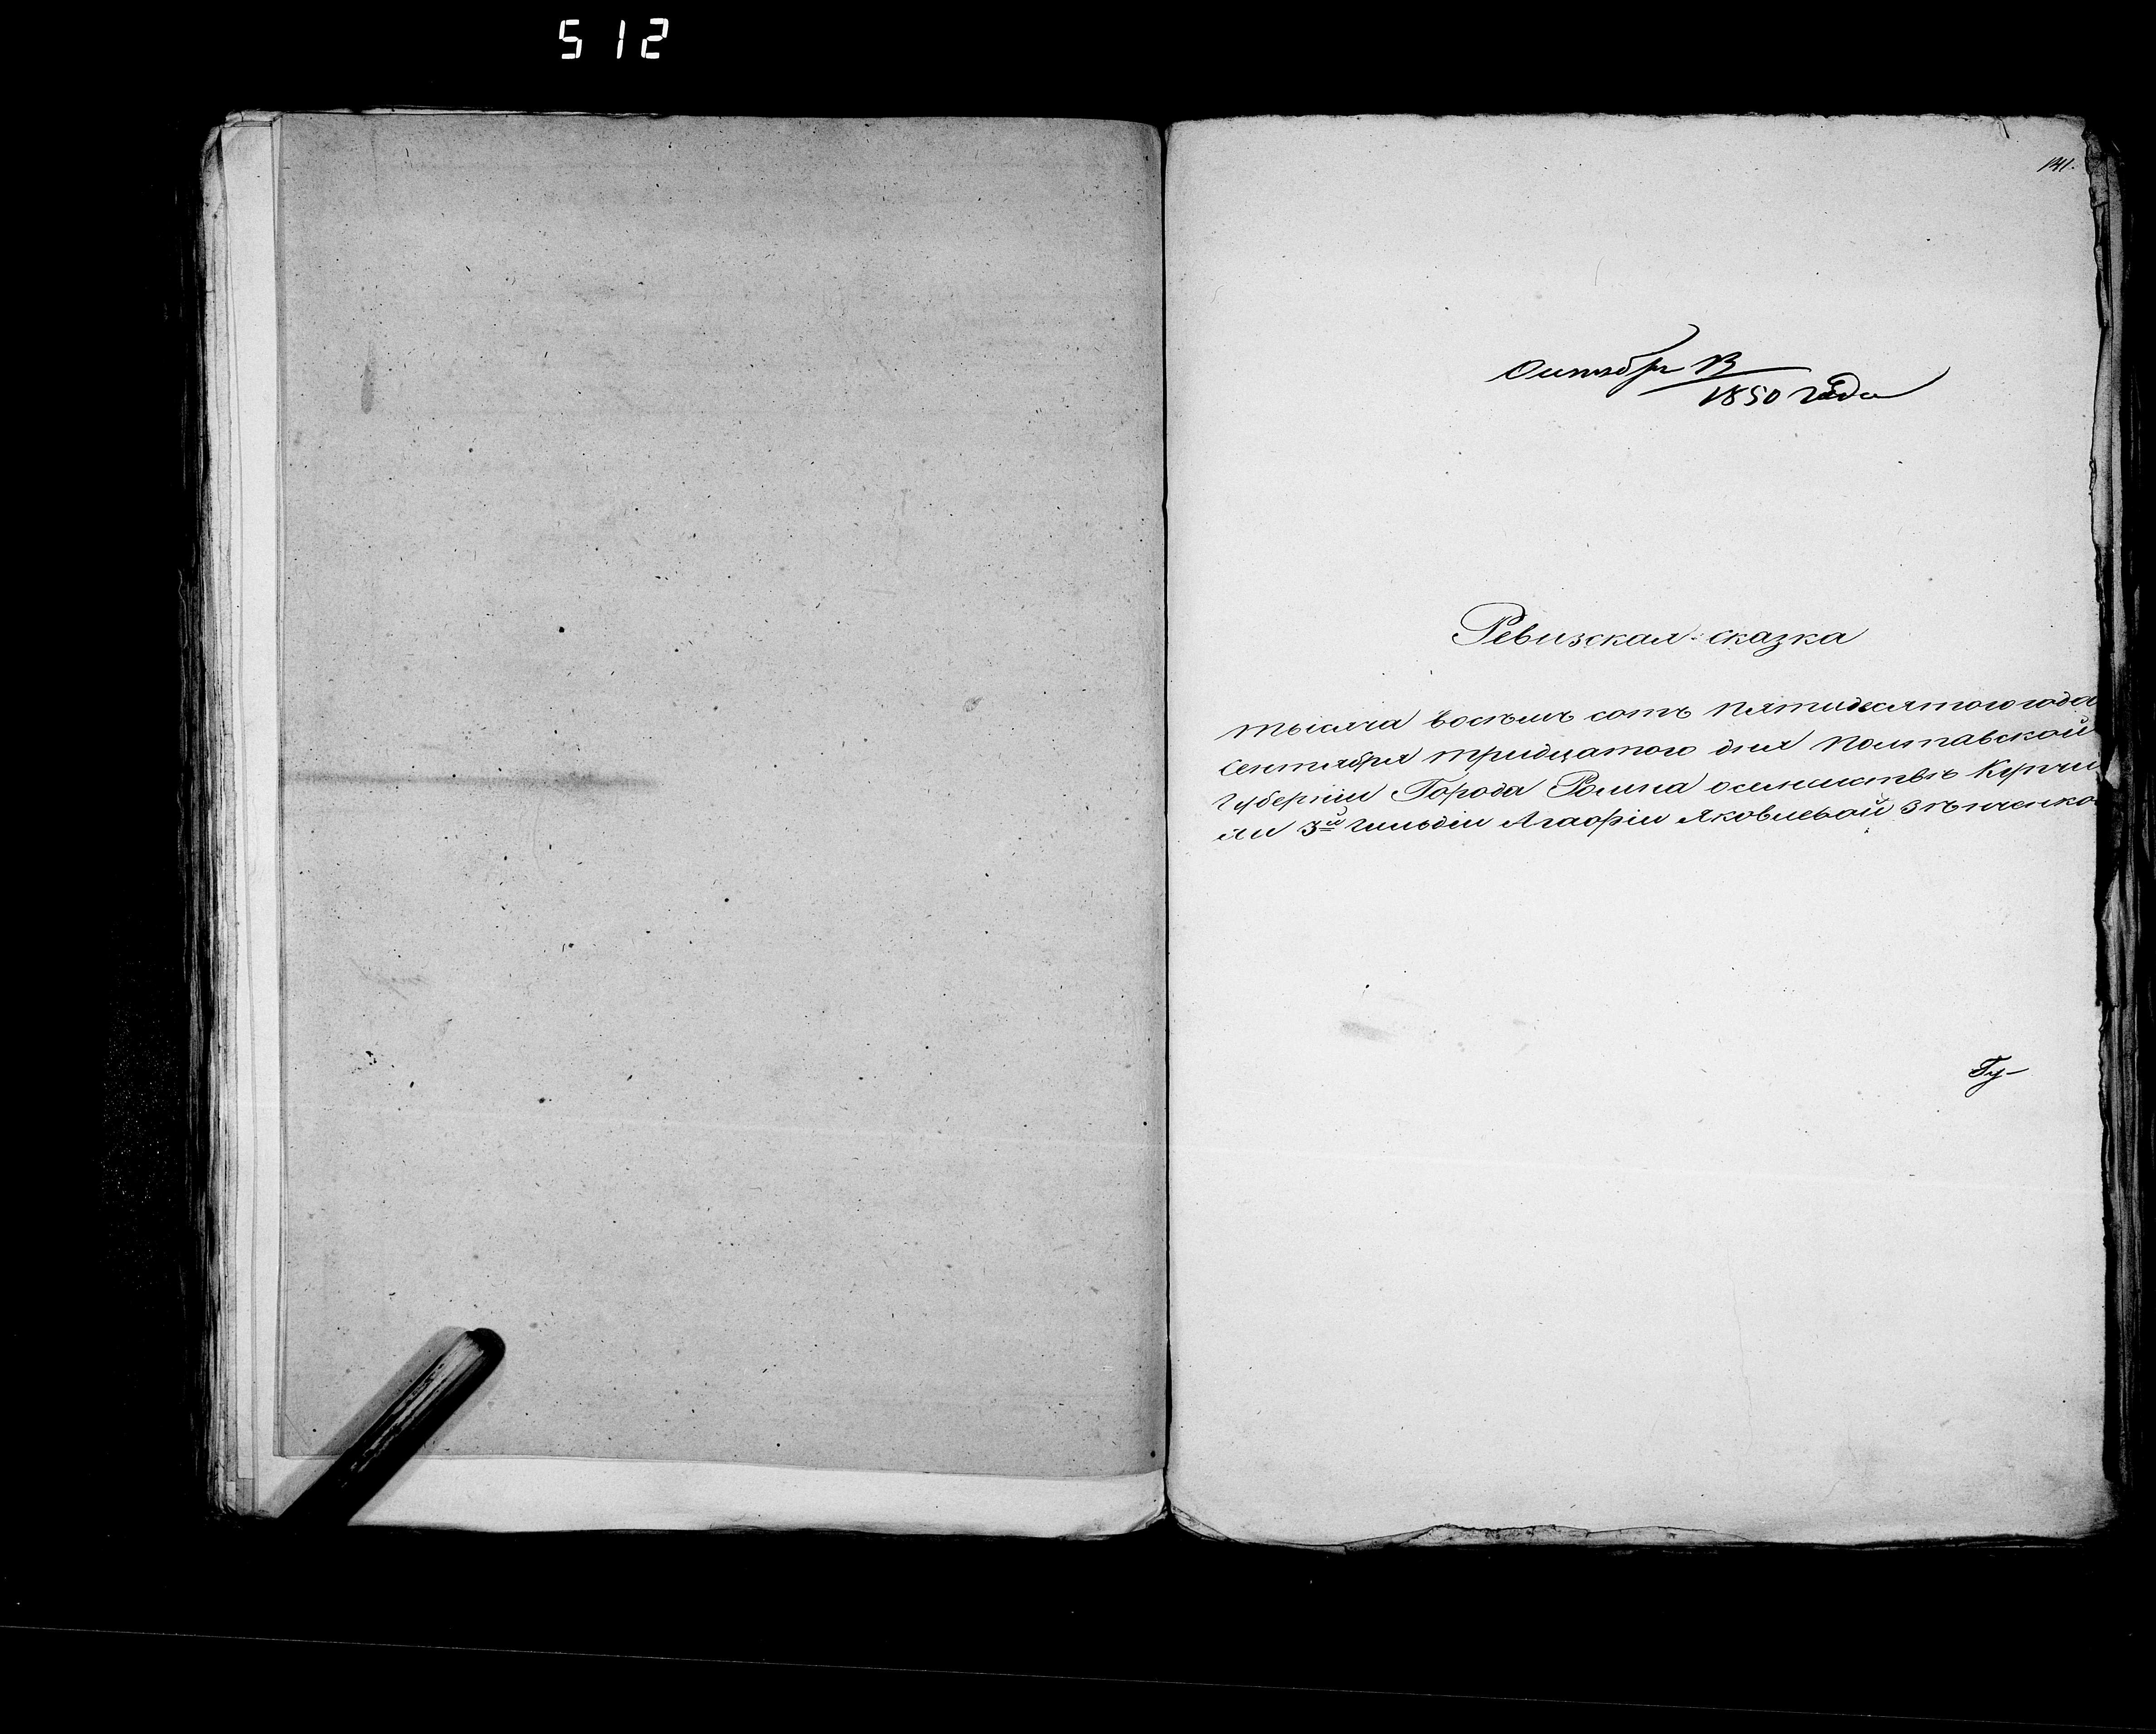 512
141.
Октября 13
1850 года
Ревизская сказка
тысяча восемь сотъ пятидесятого года
Сентября тридцатого дня Полтавской
Губерніи Города Ромна о семействѣ Купчи
ли 3й гильдіи Агафіи Яковлевой Зѣнченко
Гу-